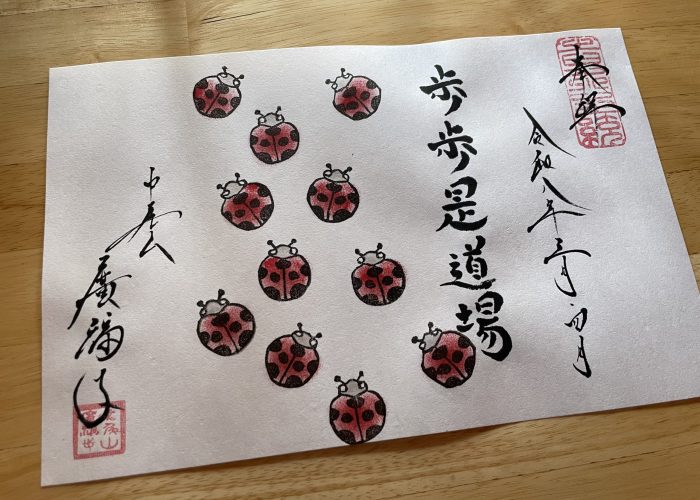 奉拝
令和八年三月・四月
歩歩是道場
廣福寺